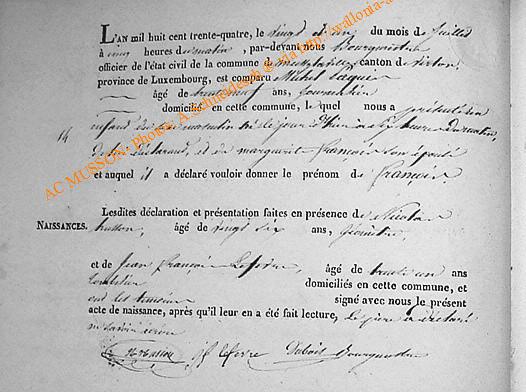 L'AN mil huit cent trente-quatre, le vingt et un du mois de juillet
à cinq heures du matin, par-devant nous Bourguignon
officier de l'état civil de la commune de canton de virton,
province de Luxembourg, est comparu Michel Jaquin
âgé de trente neuf ans, journalier
domicilié en cette commune, le quel nous a présenté un
enfant du sexe masculin né le jour d'hier à six heures du matin,
14
de lui déclarant, et de marguerite françois son épouse
et auquel il a déclaré vouloir donner le prénom de françois.
Lesdites déclaration et présentation faites en présence de Nicolas
NAISSANCES.
husson, âgé de vingt six ans, géomètre,
et de Jean françois Lefevre, âgé de trente un ans
domiciliés en cette commune, et
ont les témoins signé avec nous le présent
acte de naissance, après qu'il leur en a été fait lecture, le père a déclaré
ne savoir écrire
n husson jf lefevre Dubois Bourguignon
AC MUSSON- Photos: A. Schneidesch © via http://wallonia-a